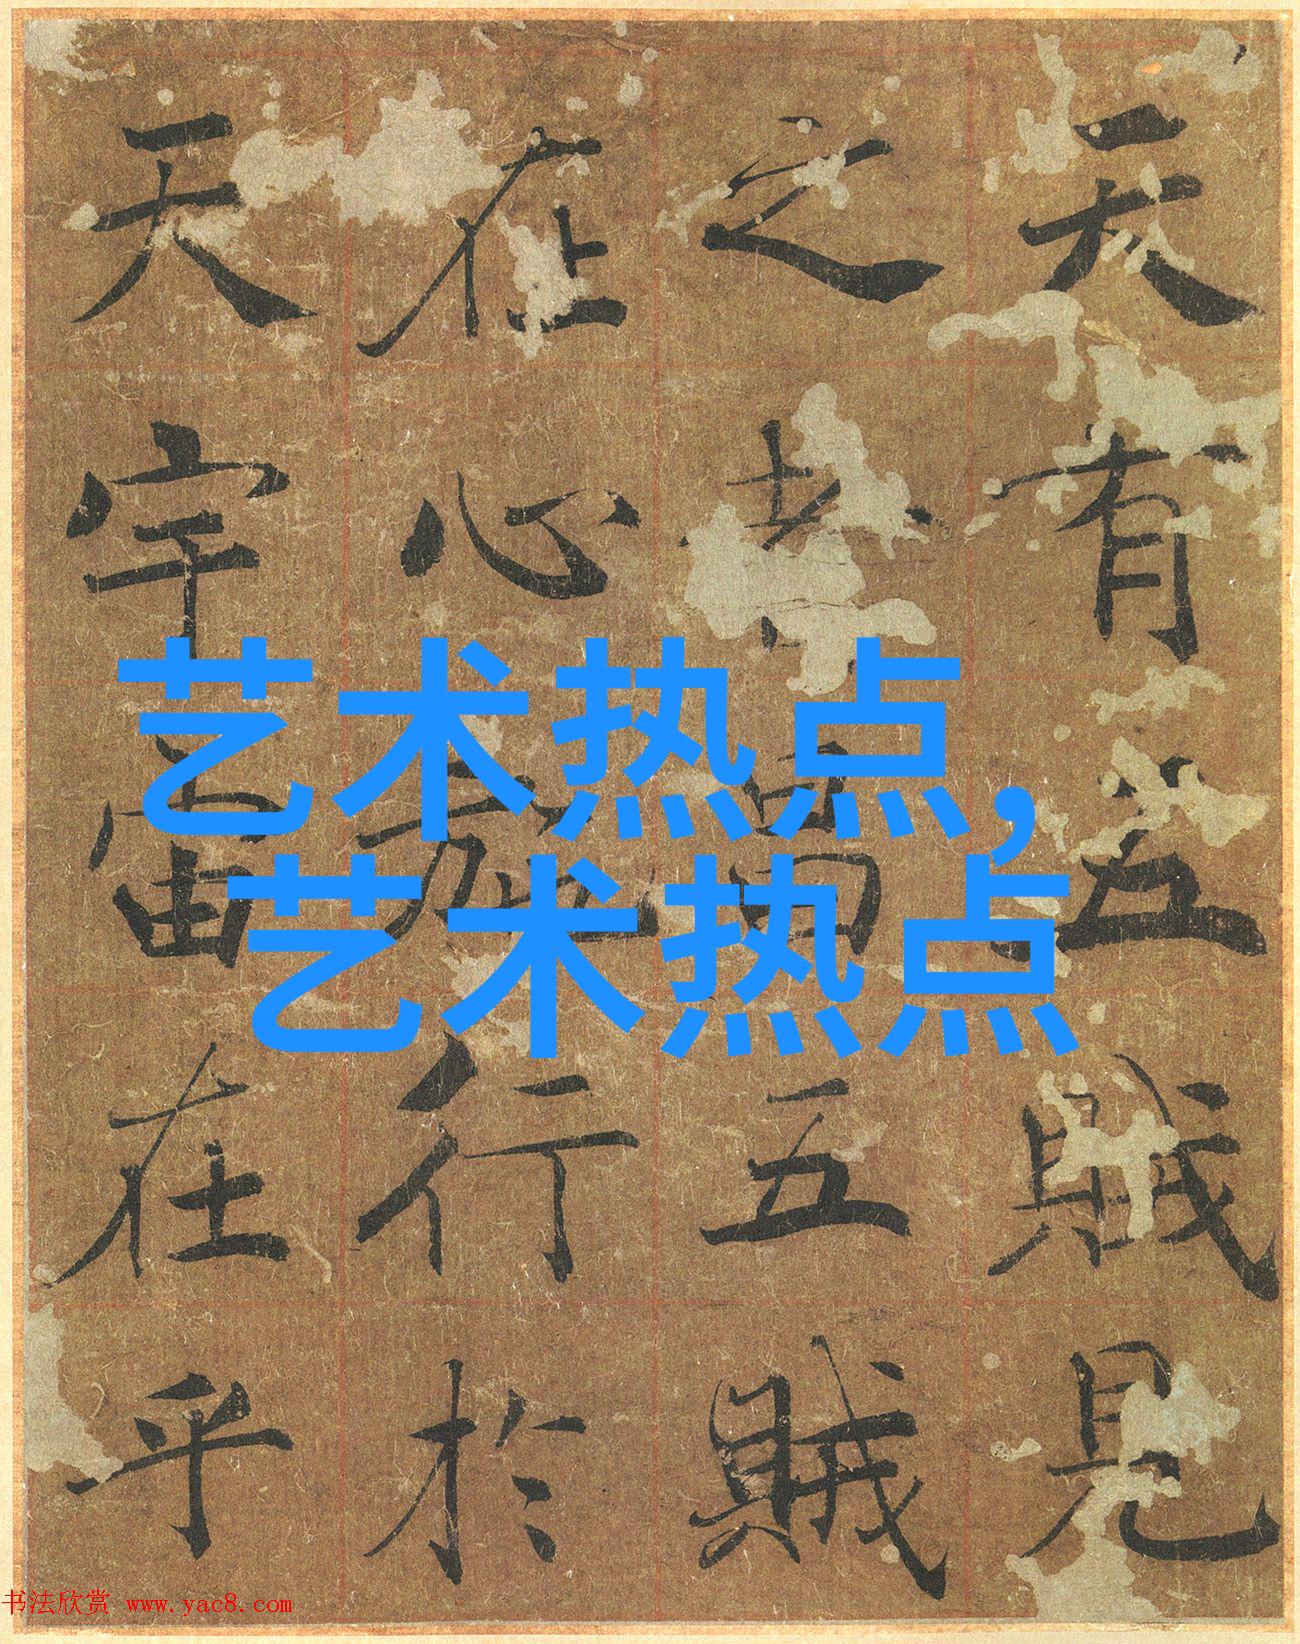 天有五賊見
之者昌五賊
在心施行於
天宇宙在乎
艺术热点,
艺术热点
书法欣赏 www.yac8.com